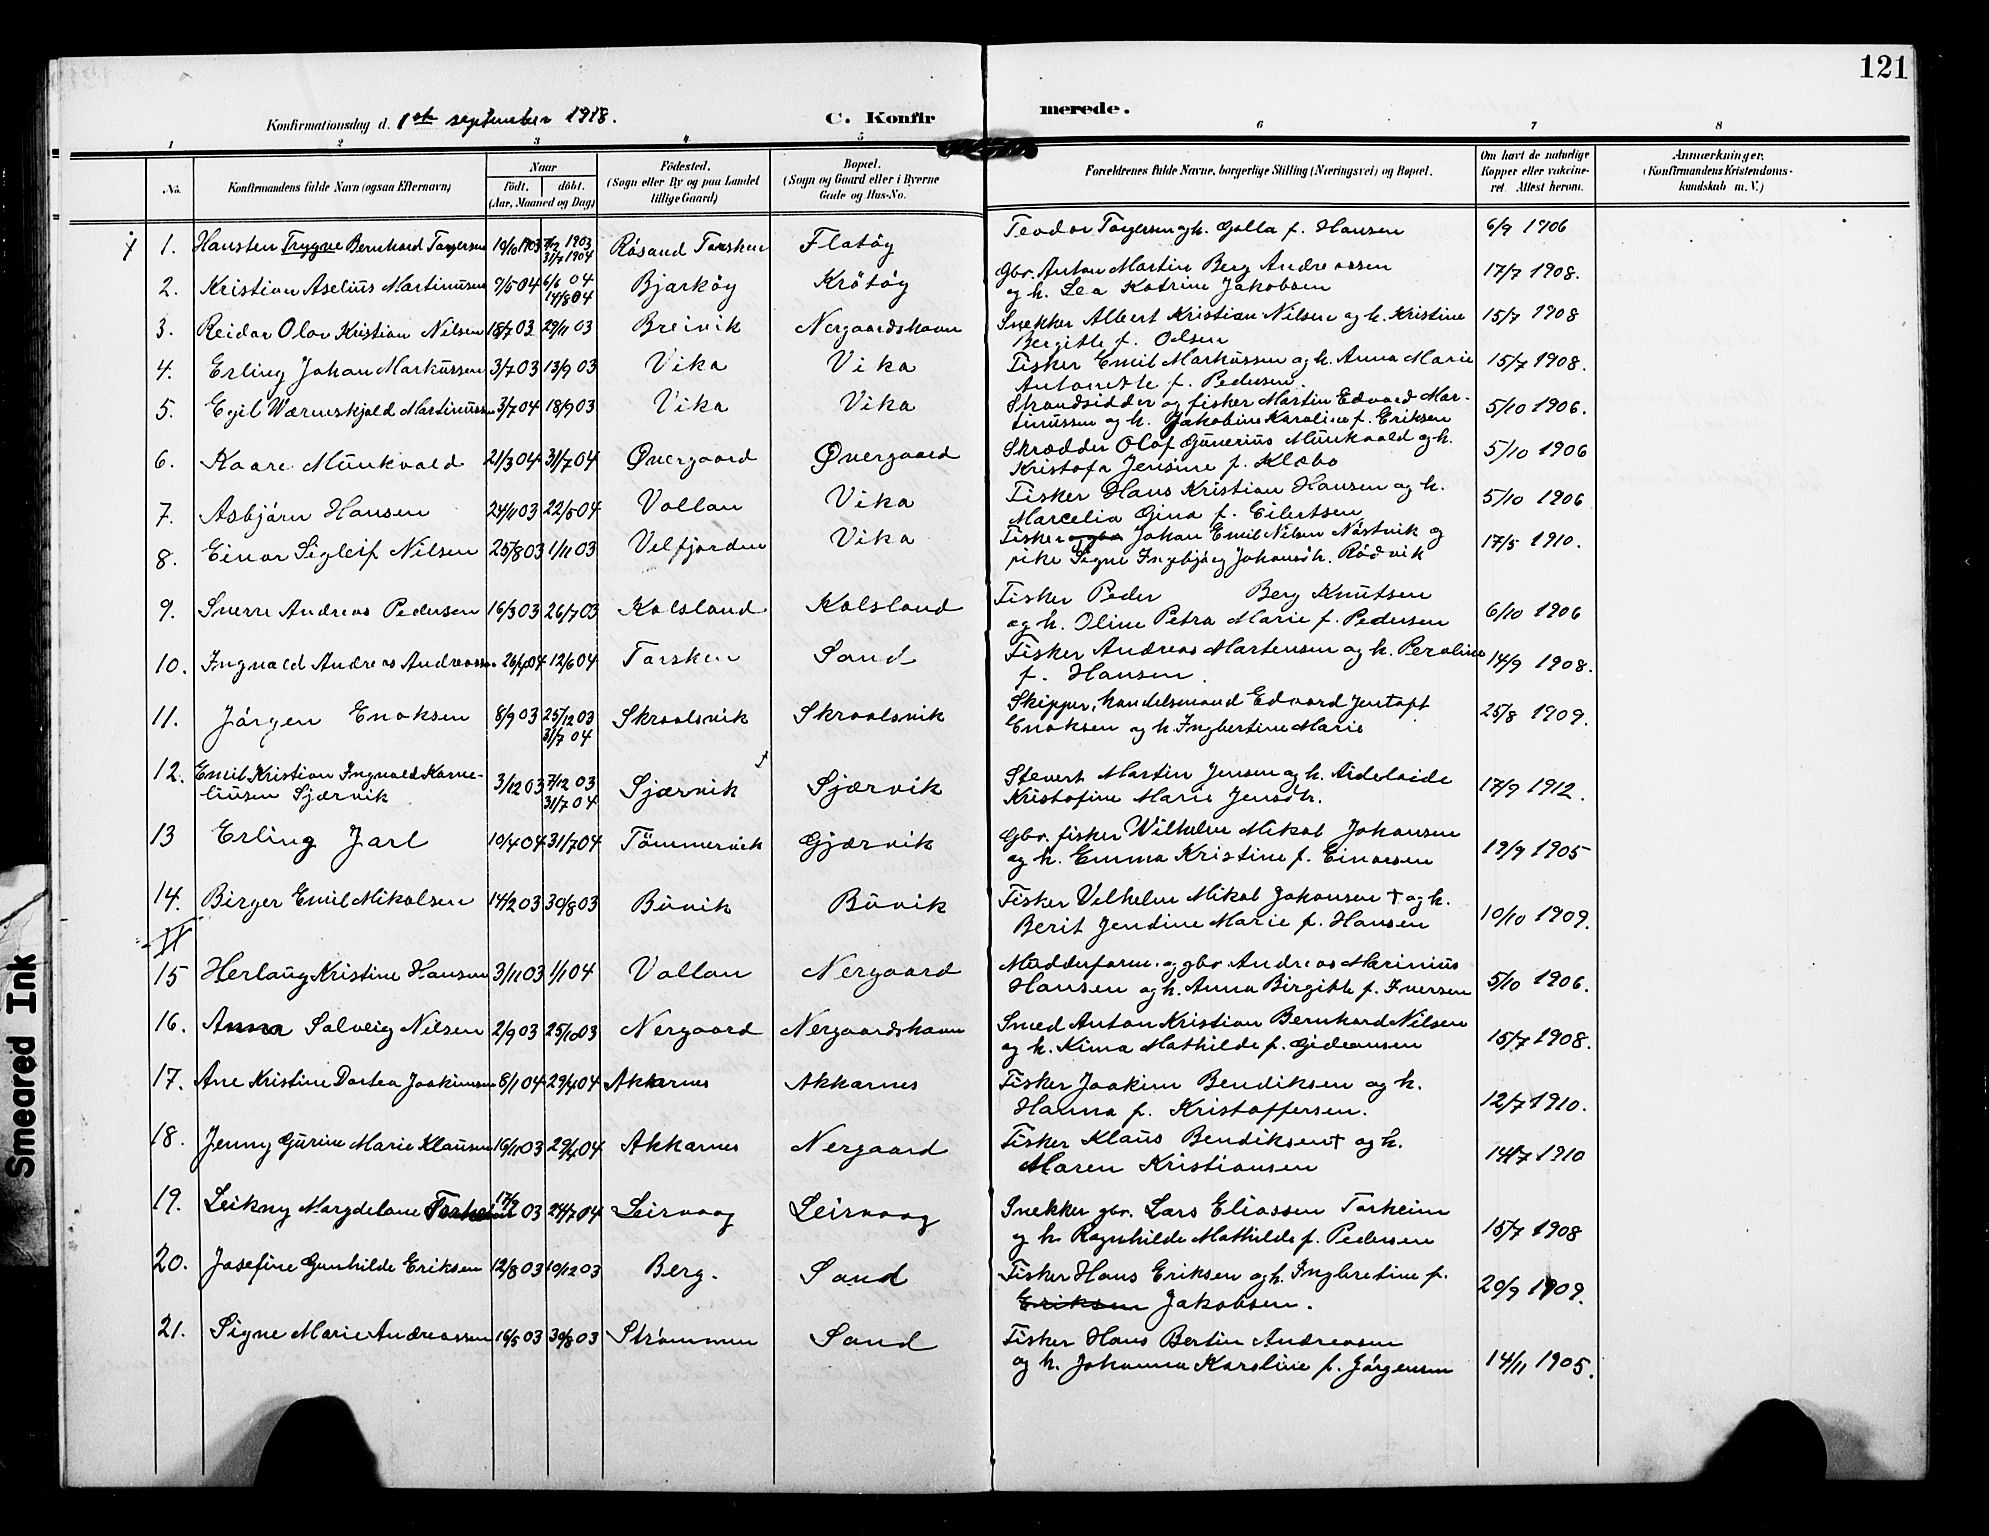 121
Konfirmationsdag d. 1ste september 1918.
C. Konfirmerede.
1 2 3 4 5 6 7 8
No.
Konfirmandens fulde Navn (ogsaa Efternavn)
Naar
Födt. döbt.
(Aar, Maaned og Dag)
Födested.
(Sogn eller By og paa Landet
tillige Gaard)
Bopæl.
(Sogn og Gaard eller i Byerne
Gade og Hus-No.
Forældrenes fulde Navne, borgerlige Stilling (Næringsvei) og Bopæl.
Om havt de naturlige
Kopper eller vakcine-
ret. Attest herom.
Anmærkninger.
(Konfirmandens Kristendoms-
kundskab m. V.)
1. Hansten Trygve Bernhard Torgersen 19/10 1903 7/12 1903 31/7 1904 Rösand Torsken Flatöy Teodor Torgersen og h. Golla f. Hansen 6/9 1906
2. Kristian Aselius Martinussen 9/5 04 6/6 04 14/8 04 Bjarköy Krötöy Gbr. Anton Martin Berg Andreassen
og h. Lea Katrine Jakobsen 17/7 1908.
3. Reidar Olav Kristian Nilsen 18/7 03 29/11 03 Breivik Nergaardshavn Snekker Albert Kristian Nilsen og h. Kristine
Bergitte f. Olsen 15/7 1908
4. Erling Johan Markussen 3/7 03 13/9 03 Vika Vika Fisker Emil Markussen og h. Anna Marie
Antonette f. Pedersen. 15/7 1908.
5. Egil Wærenskjold Martinussen 3/7 04 18/9 03 Vika Vika Strandsidder og fisker Martin Edvard Mar-
tinussen og h. Jakobine Karoline f. Eriksen 5/10 1906.
6. Kaare Munkvold 21/3 04 31/7 04 Øvergaard Øvergaard Skrædder Olaf Gunerius Munkvold og h.
Kristofa Jensine f. Klæbo 5/10 1906
7. Asbjörn Hansen 24/11 03 22/5 04 Vollan Vika Fisker Hans Kristian Hansen og h.
Marcelia Gina f. Eilertsen 5/10 1906
8. Einar Sigleif Nilsen 25/8 03 1/11 03 Velfjorden Vika Fisker Johan Emil Nilsen Nöstvik og
pike Signe Ingebjörg Johansdt. Rödvik 17/5 1910.
9. Sverre Andreas Pedersen 16/3 03 26/7 03 Kalsland Kalsland Fisker Peder Berg Knutsen
og h. Oline Petra Marie f. Pedersen 6/10 1906
10. Ingvald Andreas Andreassen 26/4 04 12/6 04 Torsken Sand Fisker Andreas Martensen og h. Peroline
f. Hansen. 14/9 1908.
11. Jörgen Enoksen 8/9 03 25/12 03 31/7 04 Skrolsvik Skrolsvik Skipper, handelsmand Edvard Jentoft
Enoksen og h. Ingbertine Marie 25/8 1909.
12. Emil Kristian Ingvald Korne-
liussen Sjærvik 3/12 03 7/12 03 31/7 04 Sjærvik Sjærvik Stevert Martin Jensen og h. Aidelaide
Kristofine Marie Jensdt. 17/9 1912.
13 Erling Jarl 10/4 04 31/7 04 Tömmervik Gjærvik Gbr. fisker Wilhelm Mikal Johansen
og h. Emma Kristine f. Einarsen 19/9 1905
14. Birger Emil Mikalsen 14/2 03 30/8 03 Buvik Buvik Fisker Vilhelm Mikal Johansen † og h.
Berit Jendine Marie f. Hansen 10/10 1909.
II
15 Herlaug Kristine Hansen 3/11 03 1/1 04 Vollan Nergaard Mudderform. og gbr. Andreas Marinius
Hansen og h. Anna Birgitte f. Iversen 5/10 1906.
16. Anna Solveig Nilsen 2/9 03 25/10 03 Nergaard Nergaardshavn Smed Anton Kristian Bernhard Nilsen
og h. Kima Mathilde f. Gideonsen 15/7 1908.
17. Ane Kristine Dortea Joakimsen 8/1 04 29/4 04 Akkarnes Akkarnes Fisker Joakim Bendiksen og h.
Hanna f. Kristoffersen. 12/7 1910.
18. Jenny Gurine Marie Klausen 16/11 03 29/4 04 Akkarnes Nergaard Fisker Klaus Bendiksen † og h.
Maren Kristiansen 14/7 1910
19. Leikny Magdelane Torheim 17/9 03 24/7 04 Leirvaag Leirvaag Snekker gbr. Lars Eliassen Torheim
og h. Ragnhilde Mathilde f. Pedersen 15/7 1908
20. Josefine Gunhilde Eriksen 12/8 03 10/12 03 Berg. Sand Fisker Hans Eriksen og h. Ingbretine f.
Eriksen Jakobsen. 20/9 1909.
21. Signe Marie Andreassen 16/5 03 30/8 03 Strömmen Sand Fisker Hans Bertin Andreasen
og h. Johanna Karoline f. Jörgensen 14/11 1905.
Smeared Ink